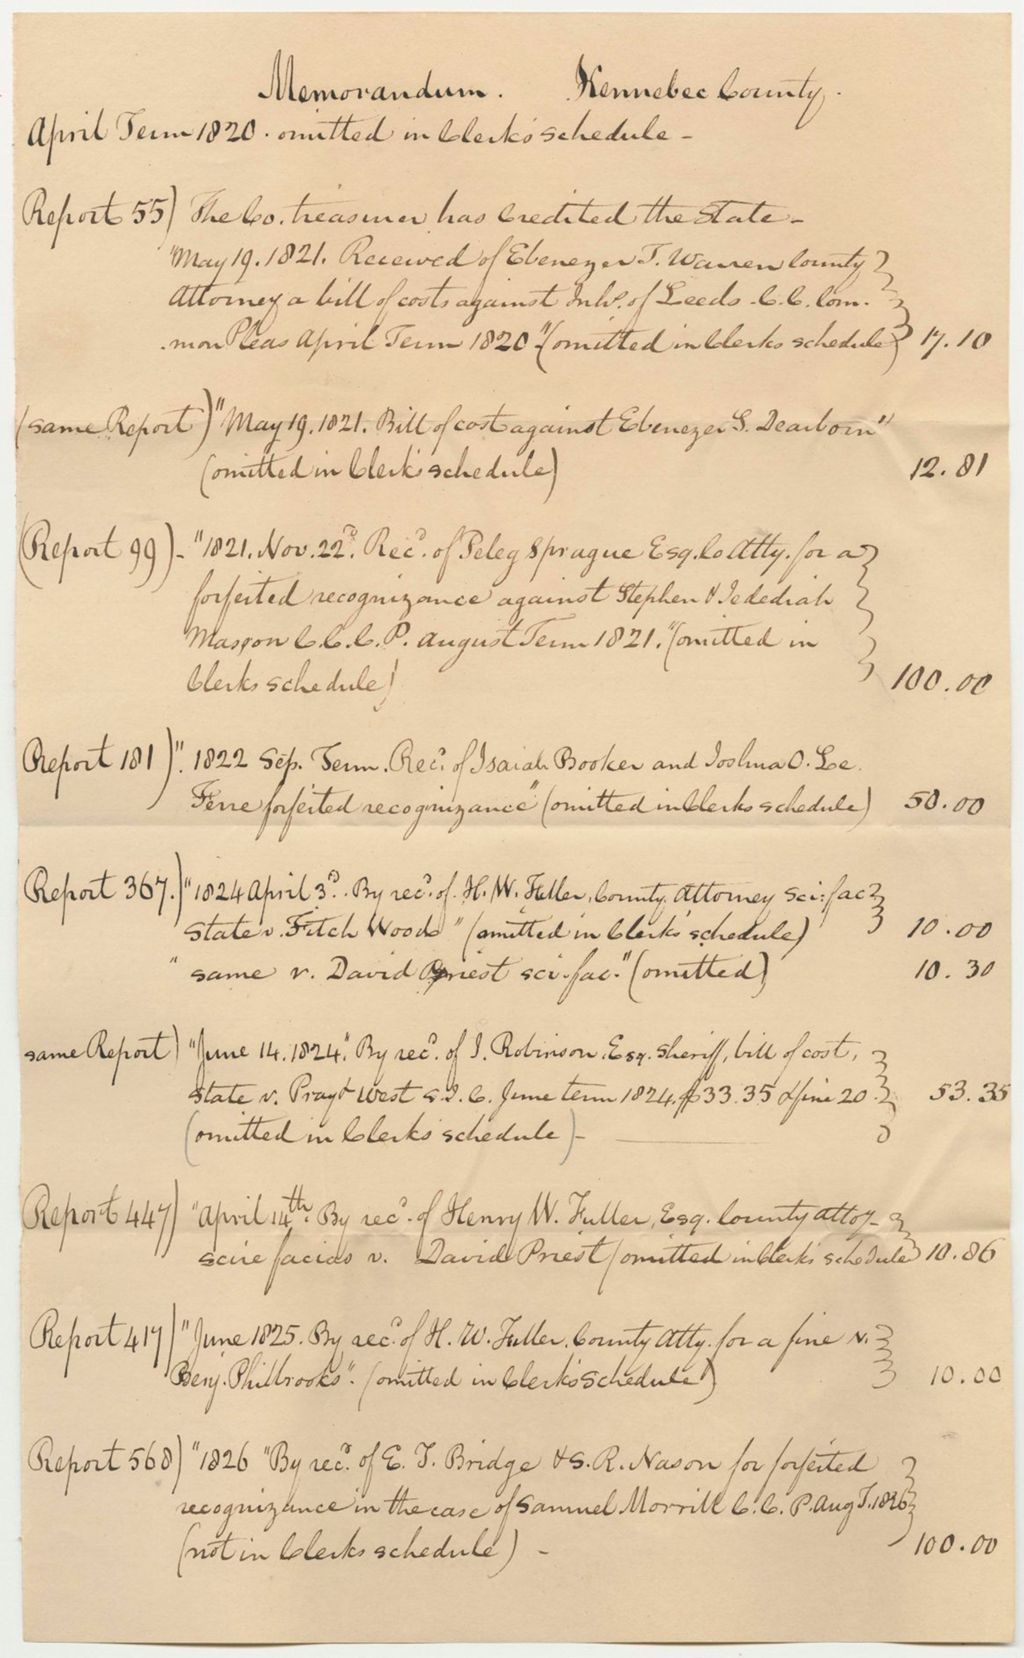 Memorandum. Kennebec County.
April Term 1820. omitted in Clerk's schedule -
Report 55) The Co. treasurer has credited the State -
"May 19. 1821. Received of Ebenezer T. Warren County
Attorney a bill of costs against Inhs. of Leeds C. C. Com.
mon Pleas April Term 1820" (omitted in Clerks schedule) 17.10
(same Report) "May 19. 1821. Bill of cost against Ebenezer S. Dearborn"
(omitted in Clerk's schedule) 12.81
(Report 99) - "1821. Nov. 22d. Recd. of Peleg Sprague Esq. Co Atty. for a
forfeited recognizance against Stephen & Jedediah
C. C. C. P. August Term 1821." (omitted in
Clerks schedule) 100.00
Report 181) ". 1822 Sep. Term. Recd. of Isaiah Booker and Joshua O. Le
Ferre forfeited recognizance" (omitted in Clerks schedule) 50.00
Report 367.) "1824 April 3d. By recd. of H. W. Fuller, County Attorney sci: fac
State v. Fitch Woods" (omitted in Clerk's schedule) 10.00
" same v. David Priest sci. fac." (omitted) 10.30
same Report) "June 14. 1824." By recd. of J. Robinson, Esq. Sheriff, bill of cost,
State v. Prayt West S. J. C. June term 1824, $33.35 & fine 20. 53.35
(omitted in Clerks schedule) -
Report 447) "April 14th. By recd. of Henry W. Fuller, Esq. County attoy -
scire facias v. David Priest (omitted in Clerks schedule 10.86
Report 417) "June 1825. By recd. of H. W. Fuller, County Atty. for a fine v.
Benj. Philbrooks". (omitted in Clerk's schedule) 10.00
Report 568) "1826 "By recd. of E. T. Bridge & S. R. Nason for forfeited
recognizance in the case of Samuel Morrill C. C. P. Aug T. 1826
(not in Clerks schedule) - 100.00